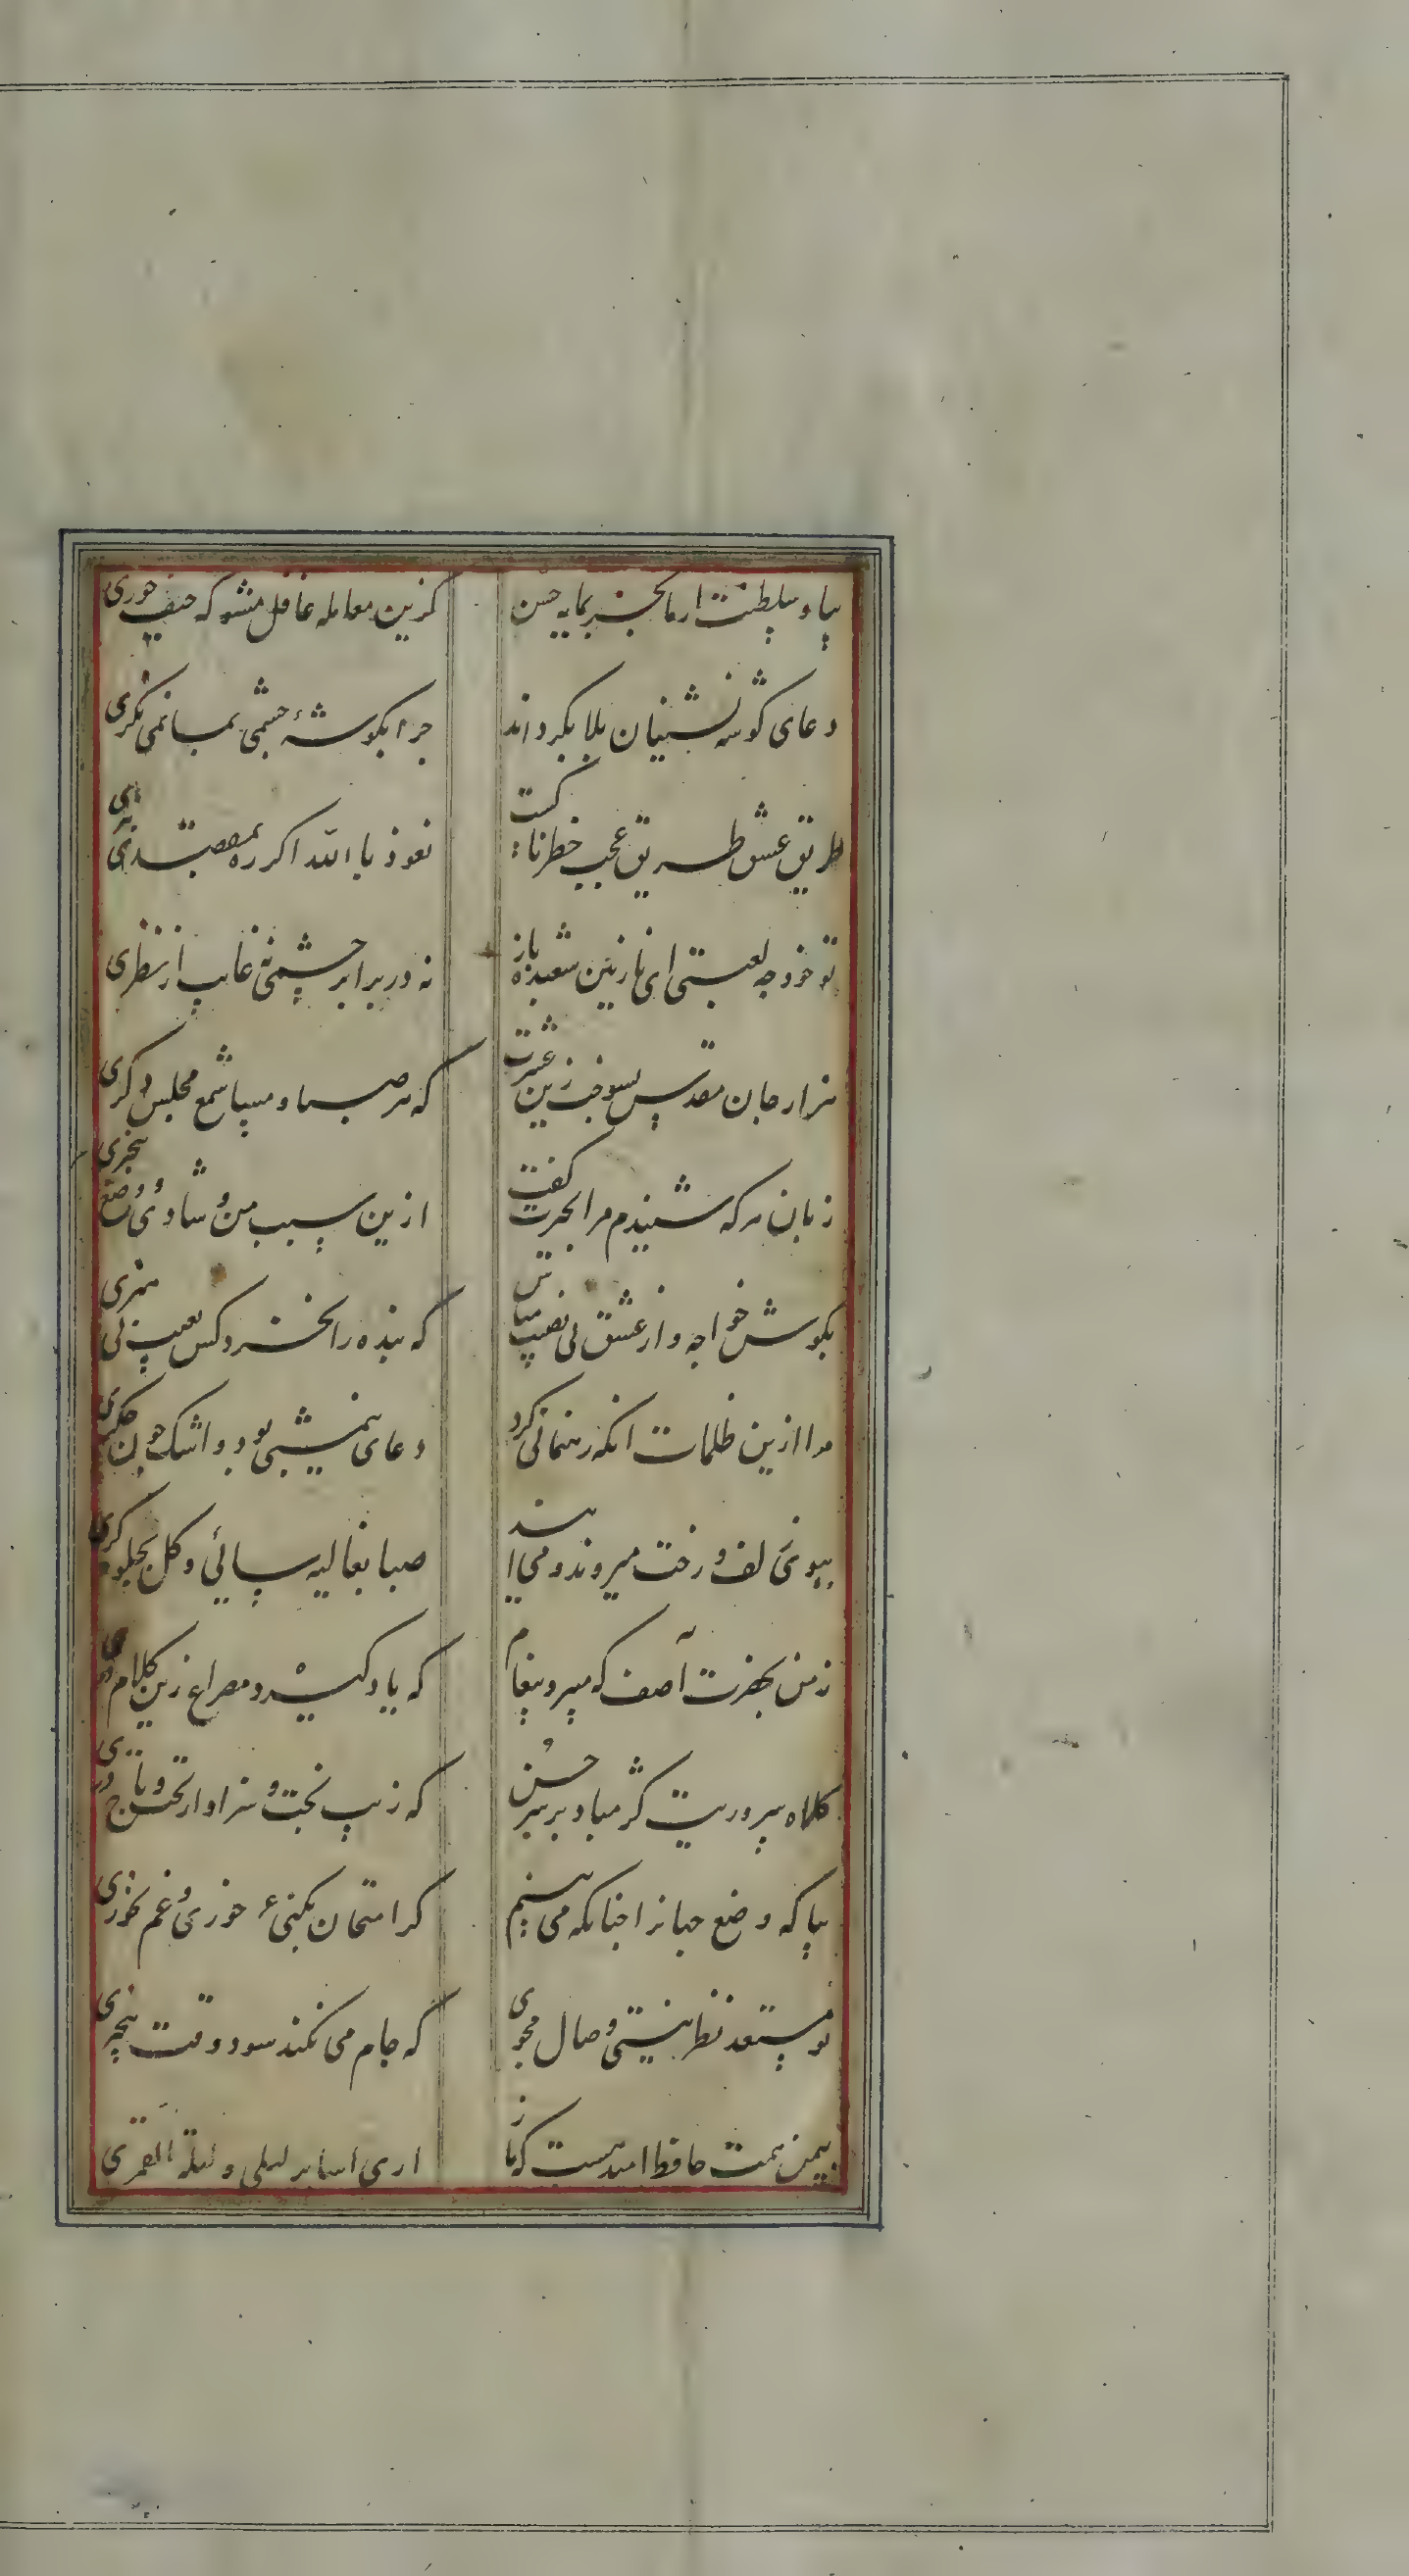 بیا و سلطنت از ما بخر بمایه حسن
کزین معامله غافل مشو که حیف خوری
دعای گوشه نشینان بلا بگرداند
چرا بگوشهٔ چشمی بما نمی نگری
طریق عشق طریق عجب خطرناکست
نعوذ باالله اگر ره بمقصد نبری
تو خود چه لعبتی ای نازنین شعبده باز
نه در برابر چشمی نه غایب از نظری
هزار جان مقدس بسوخت زین غیرت
که هر صباح و مسا شمع مجلس دگری
زبان هر که شنیدم مرا بحیرت گفت
ازین سپس من و شادی و وضع بیخبری
بکوش خواجه و از عشق بی نصیب مباش
که بنده را نخرد کس بعیب بی هنری
مرا ازین ظلمات انکه رهنمائی کرد
دعای نیمشبی بود و اشک چون
ببوی زلف و رخت میروند و می ایند
صبا بغالیه سائی و گل بجلوه گری
ز من بحضرت آصف که میبرد پیغام
که یاد گیرد و مصراع زین کلام
کلاه سروریت کژ مباد بر سر حسن
که زیب بخت و سزاوار تخت و تاج
بیا که وضع جهانرا چنانکه می بینم
گر امتحان بکنی خوری و غم نخوری
تو مستعد نظر نیستی وصال مجوی
که جام می نکند سود وقت بیخبری
بیمن همت حافظ امید هست که باز
اری اسامر لیلی و لیلة القمری